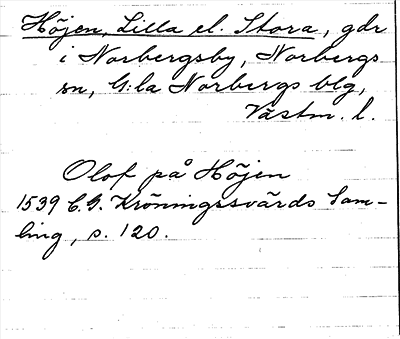 Höjen, Lilla el. Stora, gdr
i Norbergsby, Norbergs
sn, G:la Norbergs blg,
Västm. l.
Olof på Höjen
1539 C.G. Kröningssvärds Sam-
ling, s. 120.